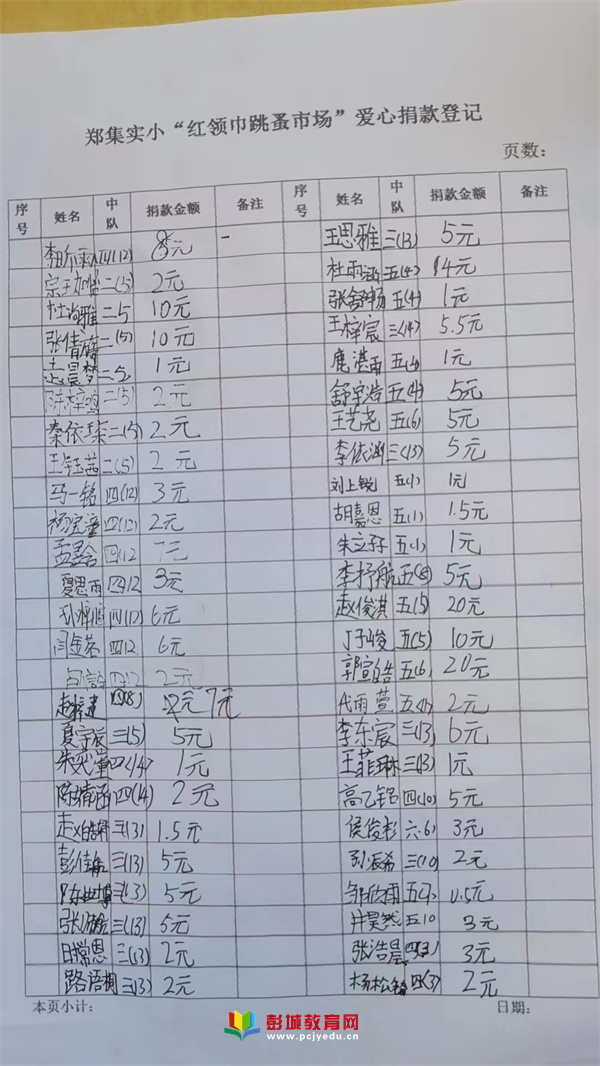 郑集实小“红领巾跳蚤市场”爱心捐款登记
页数：
序号 姓名 中队 捐款金额 备注 序号 姓名 中队 捐款金额 备注
四(12) 元 王思雅 三(13) 5元
二(5) 2元 杜雨涵 五(4) 14元
杜尚雅 二5 10元 张舒畅 五(4) 1元
张倩 二(5) 10元 王梓宸 三(4) 5.5元
二5 1元 鹿湛雨 1元
陈梓 二(5) 2元 舒宇浩 五(4) 5元
秦依 二(5) 2元 王艺尧 五(6) 5元
王 二(5) 2元 李依涵 三(13) 5元
马一铭 四(12) 3元 刘上锐 五(1) 1元
杨 四(12) 2元 胡嘉恩 五(1) 1.5元
孟 四12 7元 朱 五(1) 1元
夏思雨 四12 3元 李抒航 5元
四(12) 6元 赵俊淇 五(5) 20元
闫 四12 6元 丁子峻 五(5) 10元
四12 2元 郭宣皓 五(6) 20元
赵 四(8) 7元 代雨萱 2元
夏宇辰 三(5) 5元 李东宸 三(13) 6元
朱 四(4) 1元 王菲琳 三(3) 1元
陈靖函 四(4) 2元 高乙铭 四(10) 5元
赵 三(3) 1.5元 侯俊杉 六6) 3元
彭佳 三(13) 5元 三(10) 2元
三(3) 5元 0.5元
张 三(13) 5元 井昊然 五10 3元
恩 三(13) 2元 张浩晨 四(3) 3元
路语桐 三(13) 2元 杨松 四(3) 2元
本页小计： 日期：
彭城教育网
www.pcjyedu.cn